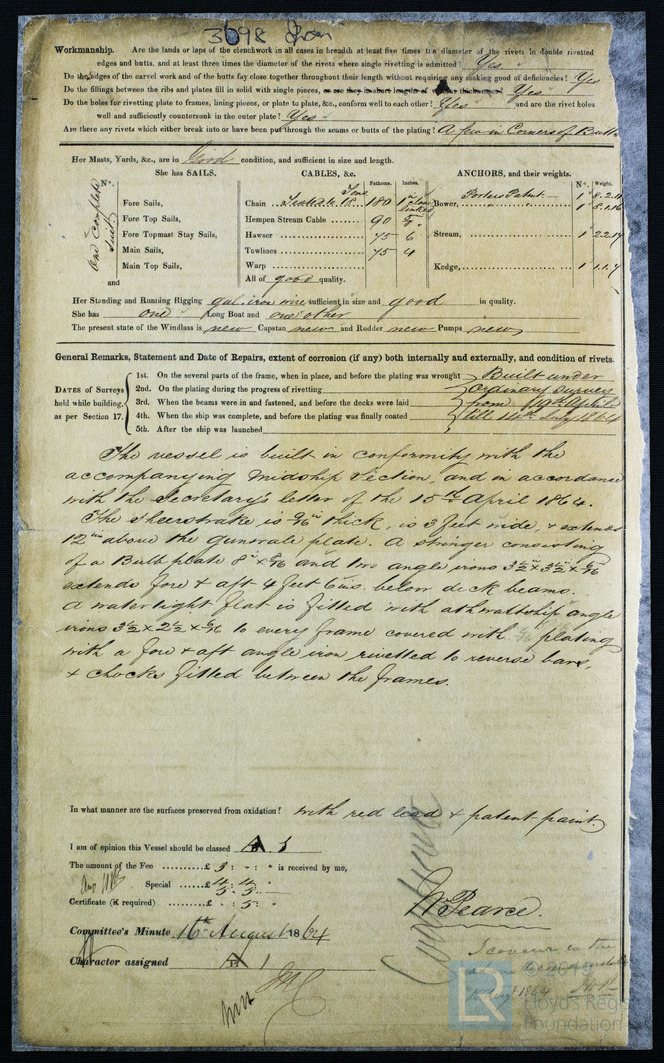 3698 Iron
Workmanship. Are the lands or laps of the clenchwork in all cases in breadth at least five times the diameter of the rivets in double rivetted
edges and butts, and at least three times the diameter of the rivets where single rivetting is admitted? Yes
Do the edges of the carvel work and of the butts fay close together throughout their length without requiring any making good of deficiencies? Yes
Do the fillings between the ribs and plates fill in solid with single pieces, Yes
Do the holes for rivetting plate to frames, lining pieces, or plate to plate, &c., conform well to each other? Yes and are the rivet holes
well and sufficiently countersunk in the outer plate? Yes
Are there any rivets which either break into or have been put through the seams or butts of the plating? A few in Corners of Butts
Her Masts, Yards, &c., are in Good condition, and sufficient in size and length.
She has SAILS. CABLES, &c. ANCHORS, and their weights.
N°. Fathoms. Inches. N°. Weight.
One complete suit
Fore Sails, Chain 180 Bower, Porters Patent 1
Fore Top Sails, Hempen Stream Cable 90 1
Fore Topmast Stay Sails, Hawser 75 6 Stream, 1
Main Sails, Towlines 75 4
Main Top Sails, Warp Kedge, 1 1.1.7
and All of good quality.
Her Standing and Running Rigging gal. iron wire sufficient in size and good in quality.
She has one Long Boat and one other
The present state of the Windlass is new Capstan new and Rudder new Pumps new
General Remarks, Statement and Date of Repairs, extent of corrosion (if any) both internally and externally, and condition of rivets.
DATES of Surveys held while building, as per Section 17.
1st. On the several parts of the frame, when in place, and before the plating was wrought Built under
2nd. On the plating during the progress of rivetting ordinary survey
3rd. When the beams were in and fastened, and before the decks were laid from April
4th. When the ship was complete, and before the plating was finally coated till
5th. After the ship was launched
The vessel is built in conformity with the
accompanying Midship Section, and in accordance
with the Secretary's letter of the 15th April 1864.
The Sheerstrake is 9/16 in thick, is 3 feet wide, & extends
12 ins above the gunwale plate. A stringer consisting
of a Bulb plate 8" x and two angle irons 3½ x 3½ x
extends fore & aft 4 feet 6 ins. below deck beams.
A watertight flat is fitted with athwartship angle
irons 3½ x 2½ x to every frame covered with plating
with a fore & aft angle iron rivetted to reverse bars,
& chocks fitted between the frames.
In what manner are the surfaces preserved from oxidation? with red lead & patent paint
I am of opinion this Vessel should be classed A 1
The amount of the Fee £ 3 : - : - is received by me,
Special £
Certificate (if required) £ - : 5 : -
Wm Pearce.
Committee's Minute 16th August 1864
Character assigned A 1
I concur in the
LR
Lloyd's Register
Foundation